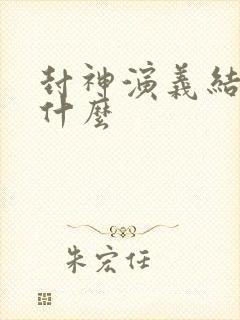 封神演義結
什麼
朱宏任